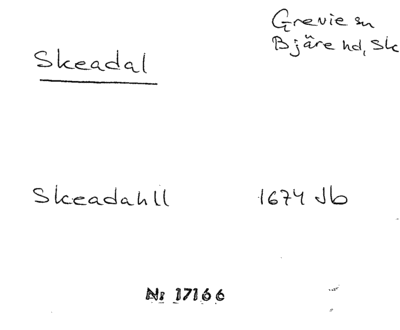 Grevie sn
Skeadal
Bjäre hd, Sk
Skeadahll 1674 Jb
Nr 17166